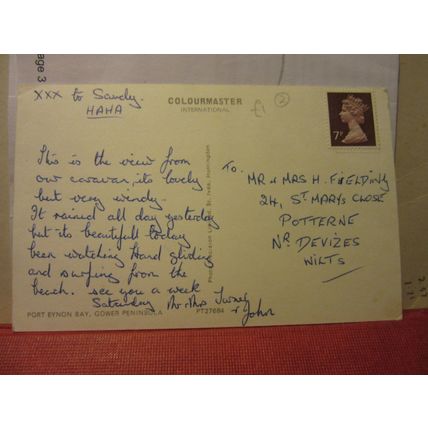 age 3
xxx to Sandy.
HAHA
COLOURMASTER
INTERNATIONAL
£1
2
7P
This is the view from
our caravan, its lovely
but very windy.
It rained all day yesterday
but its beautifull today
been watching Hand gliding
and surfing from the
beach. see you a week
Saturday Mr & Mrs
& John
To.
MR & MRS H. FIELDING
24, ST MARYS CLOSE
POTTERNE
NR DEVIZES
WILTS
St. Ives, Huntingdon
PORT EYNON BAY, GOWER PENINSULA
PT27684